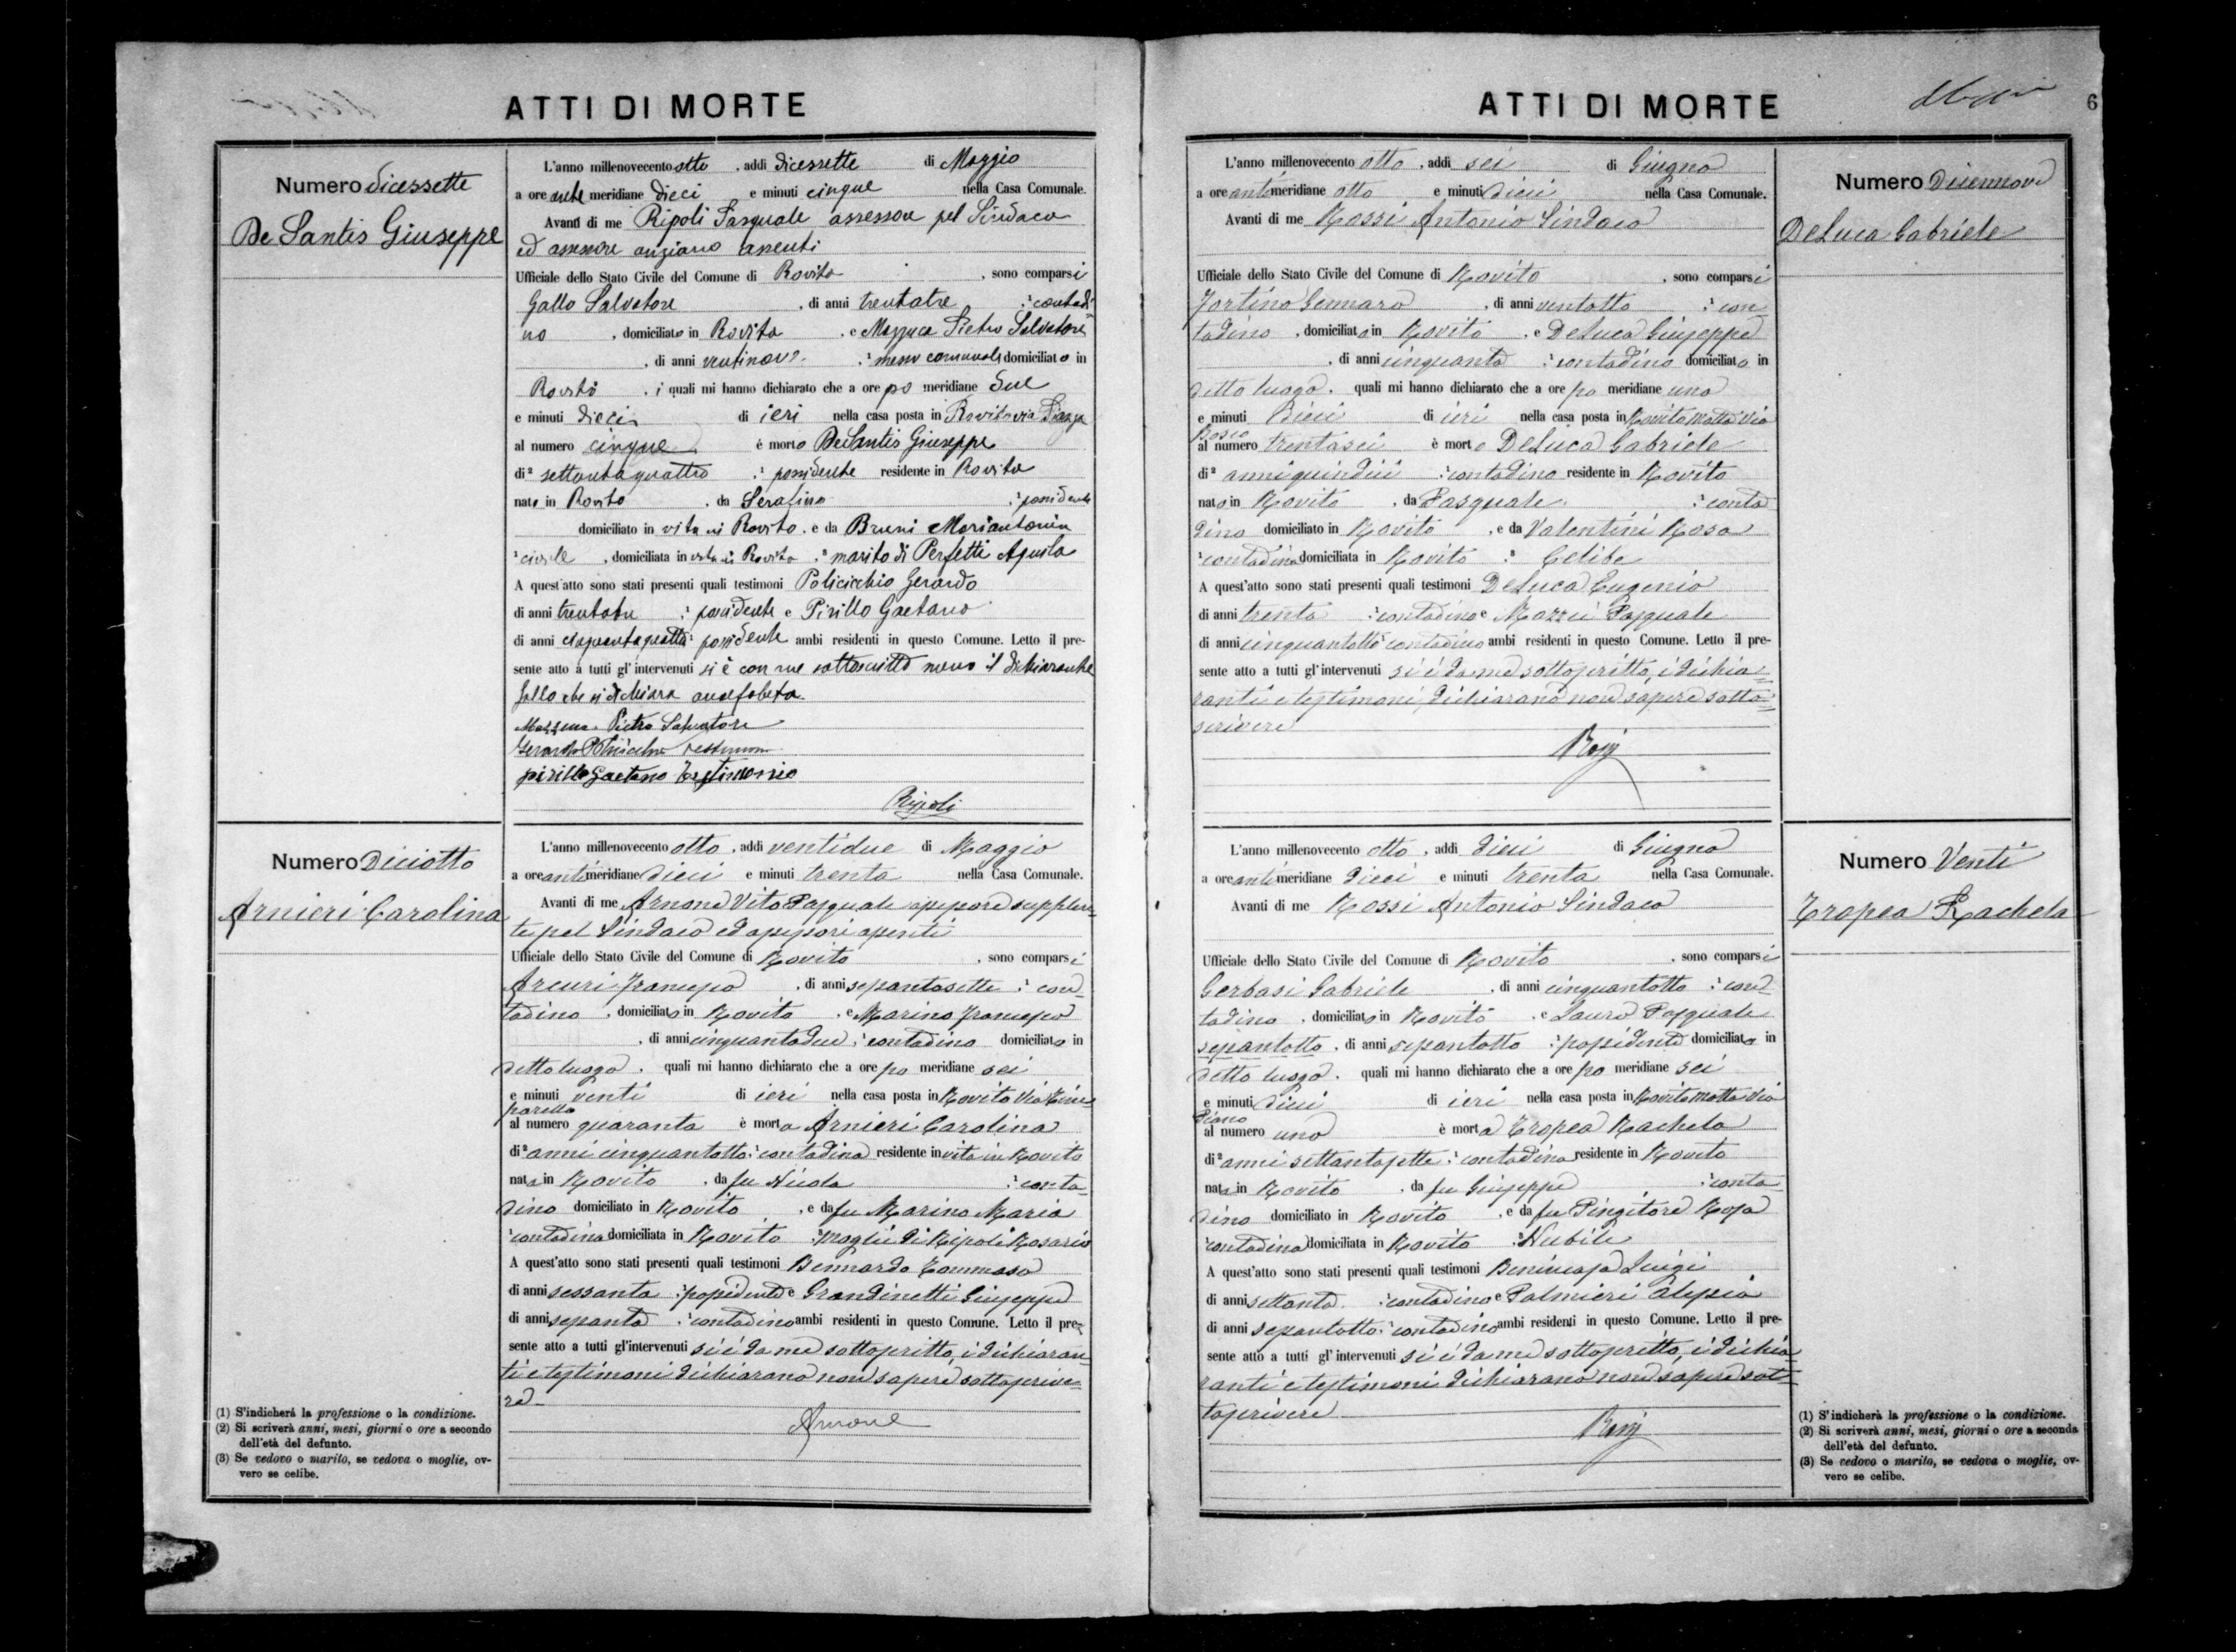 ATTI DI MORTE
Numero dicessette
De Santis Giuseppe
L'anno millenovecento otto, addì dicessette di Maggio
a ore ante meridiane dieci e minuti cinque nella Casa Comunale.
Avanti di me Ripoli Pasquale assessore pel Sindaco
ed assessore anziano assenti
Ufficiale dello Stato Civile del Comune di Rovito, sono comparsi
Gallo Salvatore, di anni trentatre, contadi
no, domiciliato in Rovito, e Mazzuca Pietro Salvatore
, di anni ventinove, messo comunale domiciliato in
Rovito, i quali mi hanno dichiarato che a ore po meridiane due
e minuti dieci di ieri nella casa posta in Rovito via Piazza
al numero cinque è morto De Santis Giuseppe
di settantaquattro, possidente residente in Rovito
nato in Rovito, da Serafino, possidente
domiciliato in vita in Rovito, e da Bruni Mariantonia
civile, domiciliata in vita in Rovito, marito di Perfetti Aquila
A quest'atto sono stati presenti quali testimoni Policicchio Gerardo
di anni trentatre, possidente e Pirillo Gaetano
di anni cinquantaquattro possidente ambi residenti in questo Comune. Letto il pre-
sente atto a tutti gl'intervenuti si è con me sottoscritto meno il dichiarante
Gallo che si dichiara analfabeta
Mazzuca Pietro Salvatore
Gerardo Policicchio testimone
pirillo Gaetano Testimonio
Ripoli
Numero Diciotto
Arnieri Carolina
L'anno millenovecento otto, addì ventidue di Maggio
a ore antimeridiane dieci e minuti trenta nella Casa Comunale.
Avanti di me Arnone Vito Pasquale assessore supplen-
te pel Sindaco ed assessori assenti
Ufficiale dello Stato Civile del Comune di Rovito, sono comparsi
Arcuri Francesco, di anni sessantasette, con-
tadino, domiciliato in Rovito, e Marino Francesco
, di anni cinquantadue, contadino domiciliato in
detto luogo, quali mi hanno dichiarato che a ore po meridiane sei
e minuti venti di ieri nella casa posta in Rovito Via
al numero quaranta è morta Arnieri Carolina
di anni cinquantotto, contadina residente in vita in Rovito
nata in Rovito, da fu Nicola, conta-
dino domiciliato in Rovito, e da fu Marino Maria
contadina domiciliata in Rovito, moglie di Ripoli Rosario
A quest'atto sono stati presenti quali testimoni Bennardo Tommaso
di anni sessanta, possidente e Grandinetti Giuseppe
di anni sessanta, contadino ambi residenti in questo Comune. Letto il pre-
sente atto a tutti gl'intervenuti si è da me sottoscritto, i dichiaran-
ti e testimoni dichiarano non sapere sottoscrive-
re
Arnone
(1) S'indicherà la professione o la condizione.
(2) Si scriverà anni, mesi, giorni o ore a secondo
dell'età del defunto.
(3) Se vedovo o marito, se vedova o moglie, ov-
vero se celibe.
ATTI DI MORTE
6
L'anno millenovecento otto, addì sei di Giugno
a ore antimeridiane otto e minuti dieci nella Casa Comunale.
Avanti di me Rossi Antonio Sindaco
Ufficiale dello Stato Civile del Comune di Rovito, sono comparsi
Fortino Gennaro, di anni ventotto, con-
tadino, domiciliato in Rovito, e De Luca Giuseppe
, di anni cinquanta, contadino domiciliato in
detto luogo, quali mi hanno dichiarato che a ore po meridiane una
e minuti dieci di ieri nella casa posta in Rovito Motta Via
al numero trentasei è morto De Luca Gabriele
di anni quindici, contadino residente in Rovito
nato in Rovito, da Pasquale, conta
dino domiciliato in Rovito, e da Valentini Rosa
contadina domiciliata in Rovito, Celibe
A quest'atto sono stati presenti quali testimoni De Luca Eugenio
di anni trenta, contadino e Mazzei Pasquale
di anni cinquantotto contadino ambi residenti in questo Comune. Letto il pre-
sente atto a tutti gl'intervenuti si è da me sottoscritto, i dichia-
ranti e testimoni dichiarano non sapere sotto-
scrivere
Rossi
Numero Diciennove
De Luca Gabriele
L'anno millenovecento otto, addì dieci di Giugno
a ore antimeridiane dieci e minuti trenta nella Casa Comunale.
Avanti di me Rossi Antonio Sindaco
Ufficiale dello Stato Civile del Comune di Rovito, sono comparsi
Gerbasi Gabriele, di anni cinquantotto, con-
tadino, domiciliato in Rovito, e Lauro Pasquale
sessantotto, di anni sessantotto, possidente domiciliato in
detto luogo, quali mi hanno dichiarato che a ore po meridiane sei
e minuti dieci di ieri nella casa posta in Rovito Motta Via
Piano
al numero uno è morta Tropea Rachela
di anni settantasette, contadina residente in Rovito
nata in Rovito, da fu Giuseppe, conta-
dino domiciliato in Rovito, e da fu Pingitore Rosa
contadina domiciliata in Rovito, Nubile
A quest'atto sono stati presenti quali testimoni Benincasa Luigi
di anni settanta, contadino e Palmieri Alessio
di anni sessantotto, contadino ambi residenti in questo Comune. Letto il pre-
sente atto a tutti gl'intervenuti si è da me sottoscritto, i dichia-
ranti e testimoni dichiarano non sapere sot-
toscrivere
Rossi
Numero Venti
Tropea Rachela
(1) S'indicherà la professione o la condizione.
(2) Si scriverà anni, mesi, giorni o ore a seconda
dell'età del defunto.
(3) Se vedovo o marito, se vedova o moglie, ov-
vero se celibe.